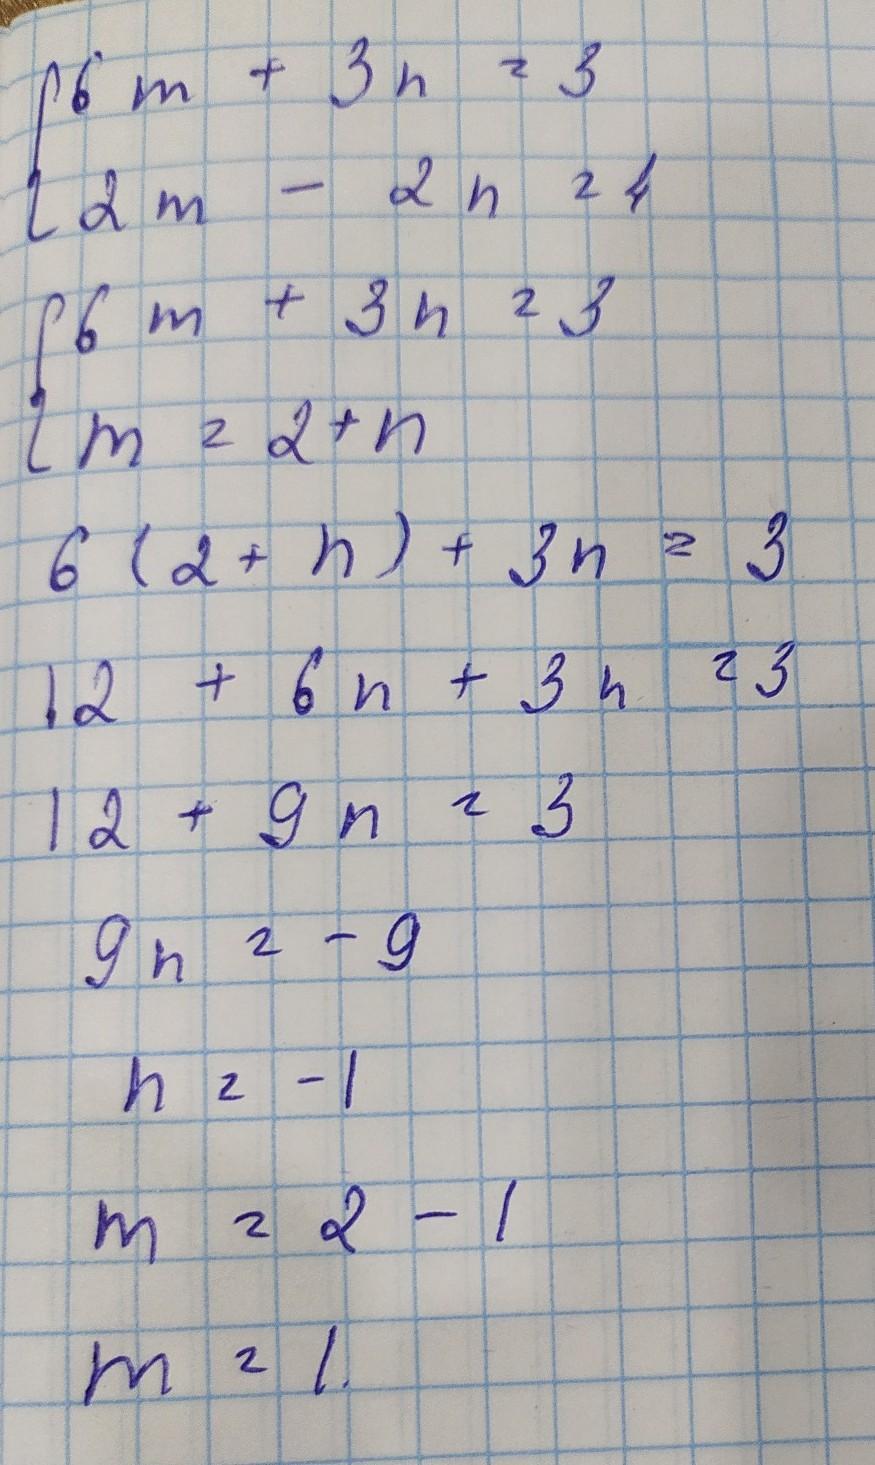 6m + 3n = 3
2m - 2n = 4
6m + 3n = 3
m = 2 + n
6(2 + n) + 3n = 3
12 + 6n + 3n = 3
12 + 9n = 3
9n = -9
n = -1
m = 2 - 1
m = 1.